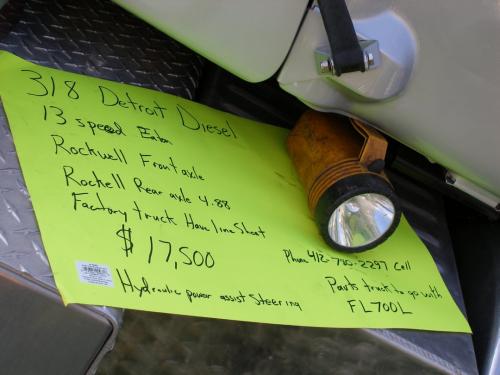 318 Detroit Diesel
13 speed Eaton
Rockwell Front axle
Rockell Rear axle 4.88
Factory truck Have line Sheet
$17,500
Phone 412-760-2297 Cell
Hydraulic power assist Steering
Parts truck to go with
FL700L